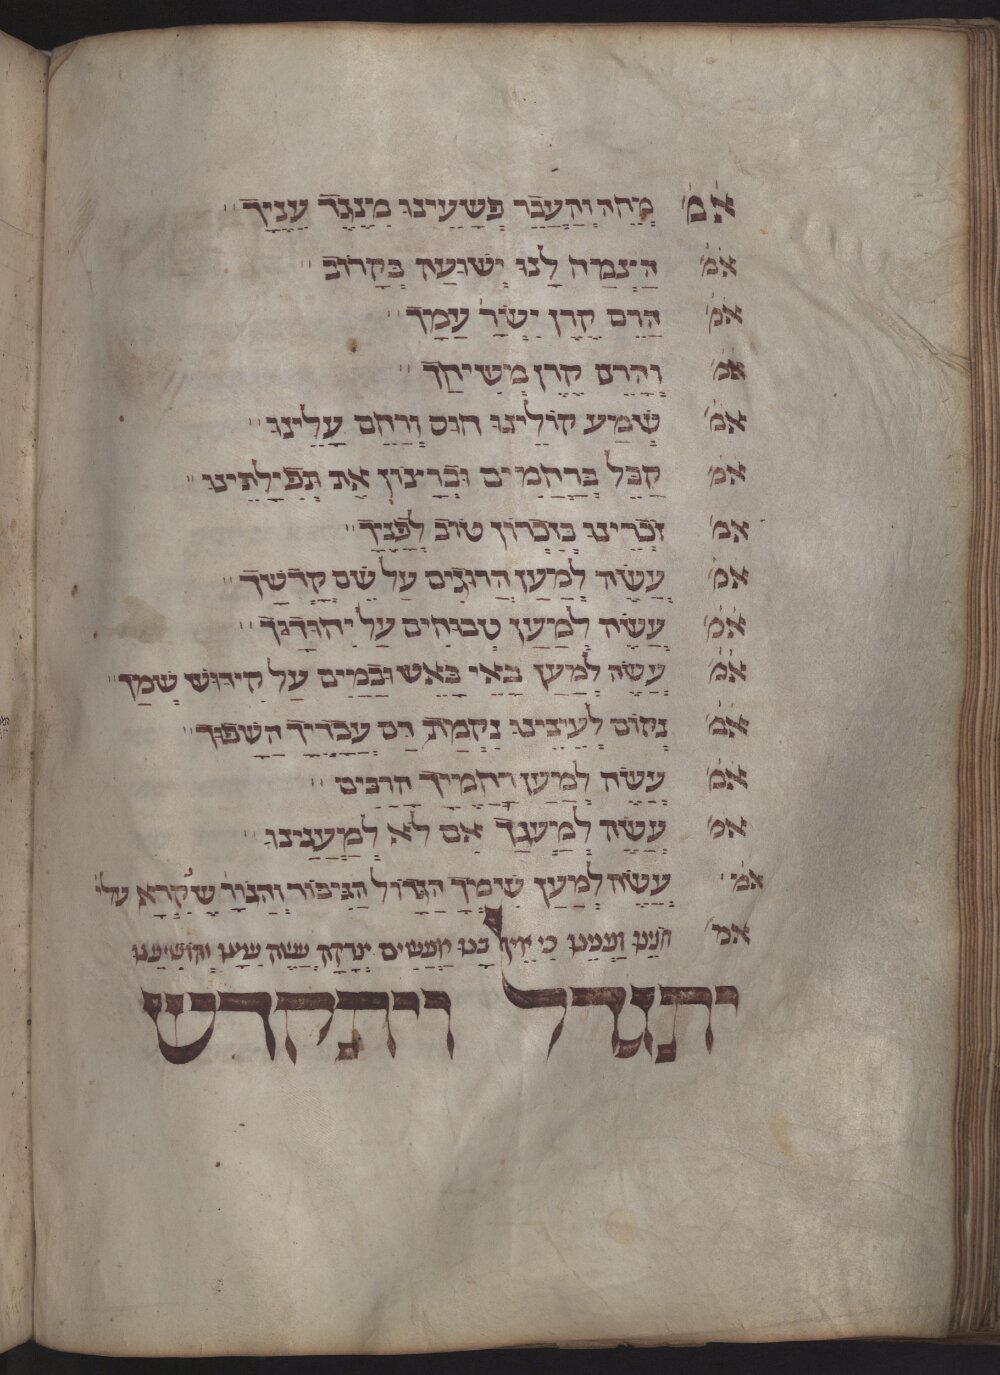 אמ' מְחֵה וְהַעֲבֵר פְּשָׁעֵינוּ מִנֶּגֶד עֵנֶיךָ
אמ' הַצְמַח לָנוּ יְשׁוּעָה בְּקָרוֹב
אמ' הָרֵם קֶרֶן יִשְׂרָ' עַמָּךְ
אמ' וְהָרֵם קֶרֶן מְשִׁיחָךְ
אמ' שְׁמַע קוֹלֵינוּ חוּס וְרַחֵם עָלֵינוּ
אמ' קַבֵּל בְּרַחֲמִים וּבְרָצוֹן אֶת תְּפִילָתֵינוּ
אמ' זָכְרֵינוּ בְּזִכְרוֹן טוֹב לְפָנֶיךָ
אמ' עֲשֵׂה לְמַעַן הֲרוּגִים עַל שֵׁם קָדְשָׁךְ
אמ' עֲשֵׂה לְמַעַן טְבוּחִים עַל יִחוּדָךְ
אמ' עֲשֵׂה לְמַעַן בָּאֵי בָאֵשׁ וּבַמַּיִם עַל קִידּוּשׁ שְׁמָךְ
אמ' נְקוֹם לְעֵינֵינוּ נִקְמַת דַּם עֲבָדֶיךָ הַשָּׁפוּךְ
אמ' עֲשֵׂה לְמַעַן רַחֲמֶיךָ הָרַבִּים
אמ' עֲשֵׂה לְמַעֲנָךְ אִם לֹא לְמַעֲנֵינוּ
אמ' עֲשֵׂה לְמַעַן שִׁימְךָ הַגָּדוֹל הַגִּיבּוֹר וְהַנּוֹרָ' שֶׁנִּקְרָא עלי'
אמ' חָנֵּנוּ וַעֲנֵנוּ כִּי אֵין בָּנוּ מַעֲשִׂים צְדָקָה עֲשֵׂה עִמָּנוּ וְהוֹשִׁיעֵנוּ
יתגדל ויתקדש